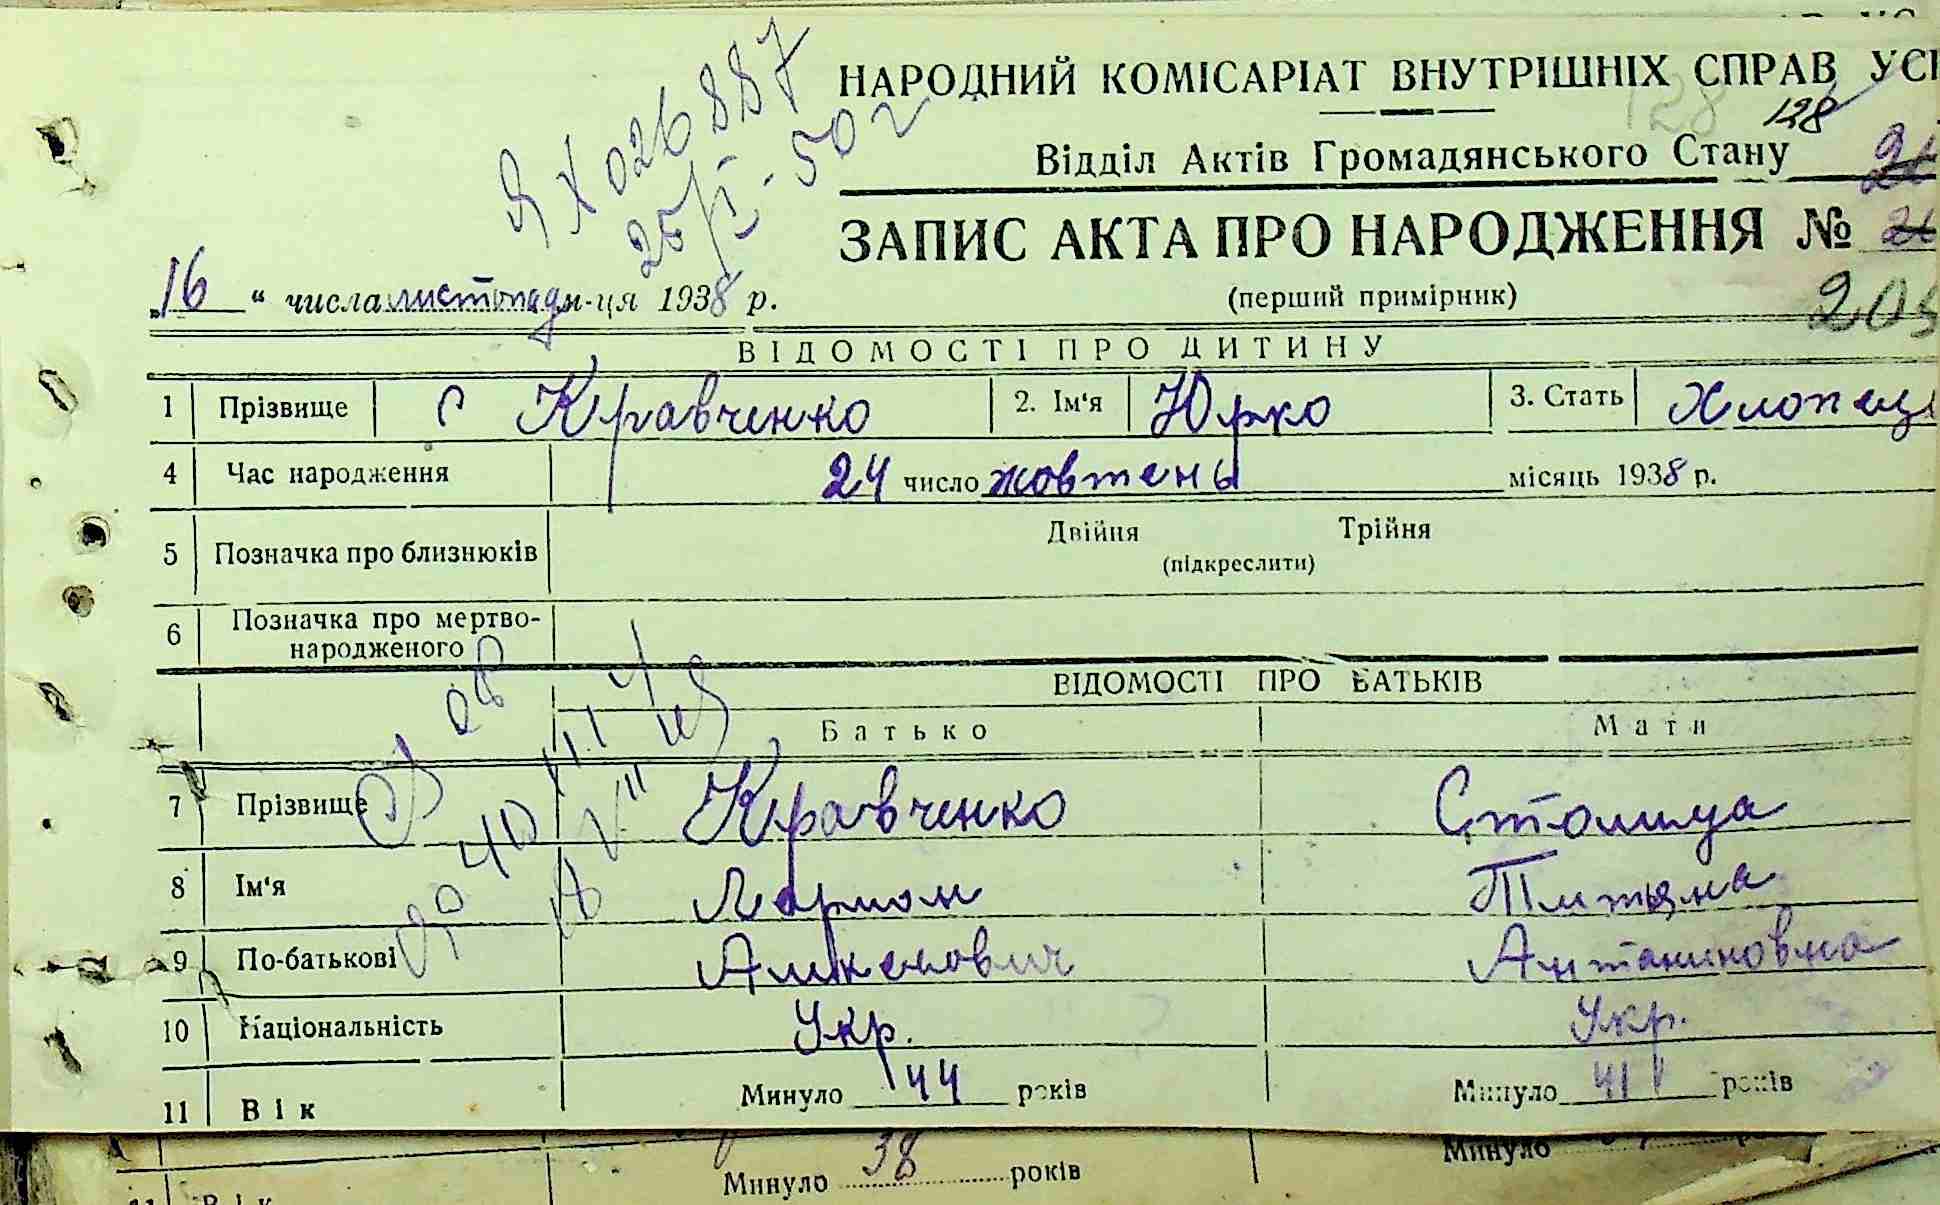 НАРОДНИЙ КОМІСАРІАТ ВНУТРІШНІХ СПРАВ
128
128
Відділ Актів Громадянського Стану
ЯХ 026887
25/I-50 г
ЗАПИС АКТА ПРО НАРОДЖЕННЯ №
„16“ числа листопад м-ця 1938 р.
(перший примірник)
ВІДОМОСТІ ПРО ДИТИНУ
1 Прізвище Кравченко 2. Ім'я Юрко 3. Стать хлопець
4 Час народження 24 число жовтень місяць 1938 р.
5 Позначка про близнюків Двійня Трійня
(підкреслити)
6 Позначка про мертво-
народженого
ВІДОМОСТІ ПРО БАТЬКІВ
Батько Мати
7 Прізвище Кравченко Столиця
8 Ім'я
9 По-батькові
10 Національність Укр. Укр.
11 Вік Минуло 44 років Минуло 41 років
Минуло 38 років Минуло
Вік